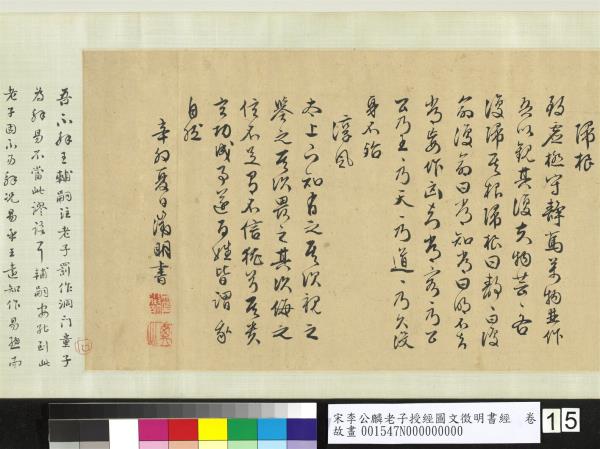 歸根
致虛極守靜篤萬物並作
吾以觀其復夫物芸々各
復歸其根歸根曰靜靜曰復
命復命曰常知常曰明不知
常妄作凶知常容容乃公
公乃王々乃天々乃道々乃久沒
身不殆
淳風
太上下知有之其次親之
譽之其次畏之其次侮之
信不足有不信猶兮其貴
言功成事遂百姓皆謂我
自然
辛卯夏日徵明書
吾不解王輔嗣注老子罰作洞門童子
為解易不當此謬註耳輔嗣安能到此
老子固不易解況易乎王遠知作易總而
宋李公麟老子授經圖文徵明書經 卷
故畫001547N000000000
15